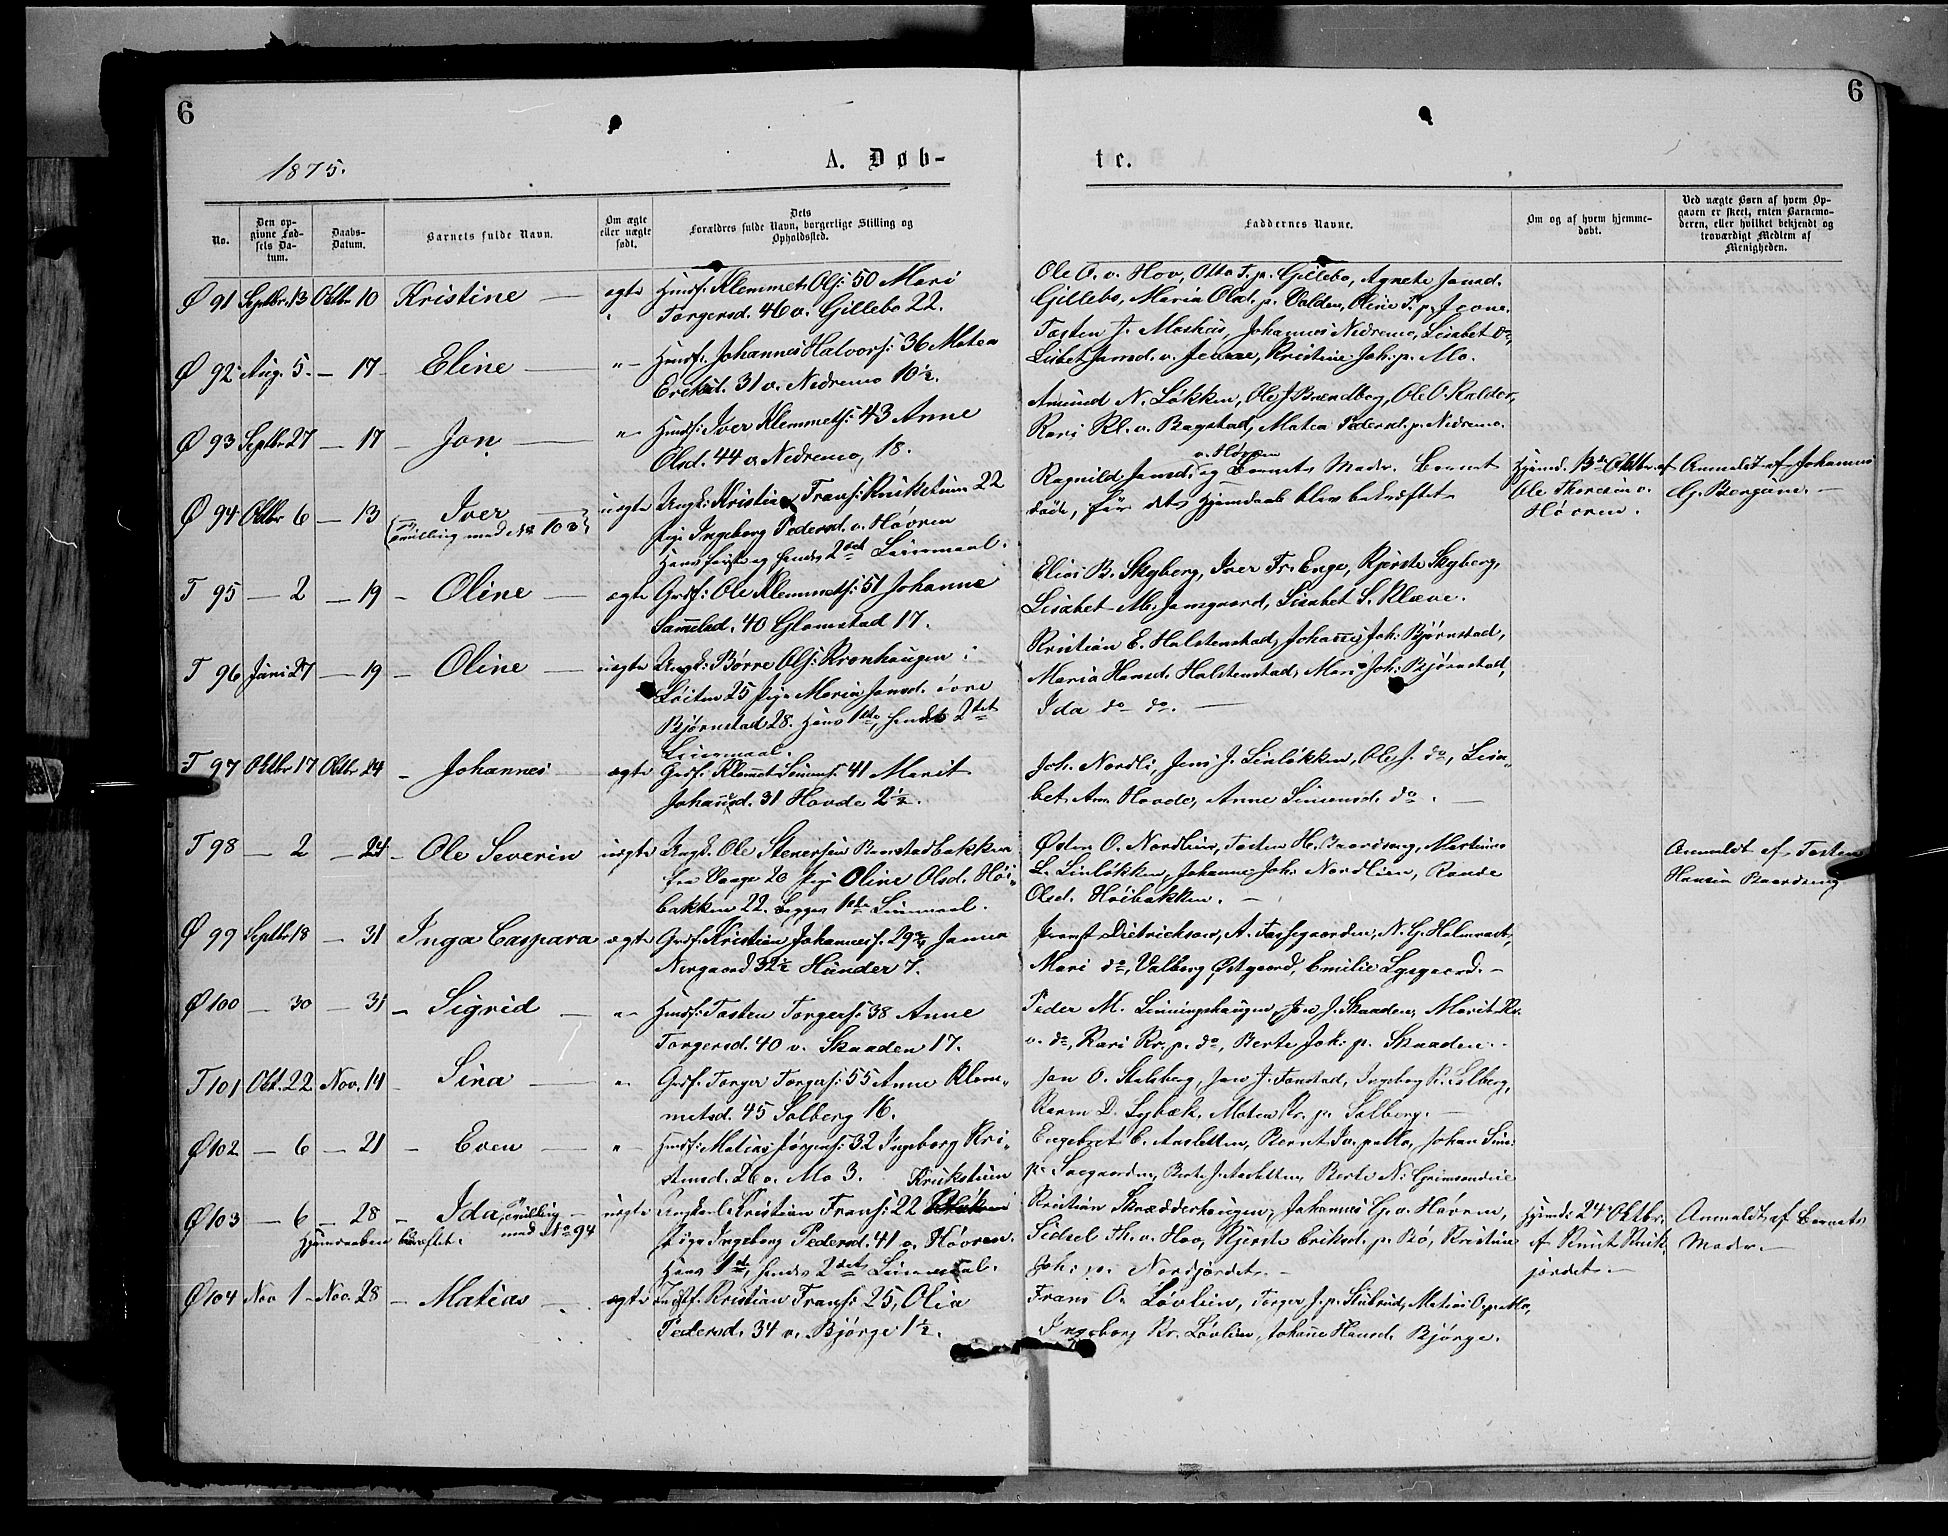 6
6
1875.
A. Døb-
te.
No.
Den opgivne Fødsels Datum.
Daabs-Datum.
Barnets fulde Navn.
Om ægte eller uægte født.
Dets Forældres fulde Navn, borgerlige Stilling og Opholdsted.
Faddernes Navne.
Om og af hvem hjemmedøbt.
Ved uægte Børn af hvem Opgaven er skeet, enten Barnemoderen, eller hvilket bekjendt og troværdigt Medlem af Menigheden.
Ø 91 Septbr. 13 Oktbr 10 Kristine — ægte Husf. Klemmet Ols: 50 Mari
Torgersd. 46 v. Gillebo 22.
Ole O. v. Hov, Otto T. p. Gillebo, Agnete Jansd.
Gillebo, Maria Olsd. p. Volden, Oline
Ø 92 Aug. 5. — 17 — Eline — " — Husf. Johannes Halvors: 36 Matea
Eriksd. 31 v. Nedremo 10½.
Tosten J. Moshus, Johannes Nedremo, Lisabet do,
Lisbet Jansd. v. Kristine Joh. p. Mo.
Ø 93 Septbr 27 — 17 — Jon — " Husf: Iver Klemmets: 43 Anne
Olsd. 44 v. Nedremo, 18.
Amund N. Løkken, Ole J Brændbog, Ole O. Kalder,
Kari Kl. v. Bagstad, Matea Pedersd. p. Nedremo.
Ø 94 Oktbr 6 — 13 Iver —
(Tvilling med No 103)
uægte Ungk: Kristian Frans: Krukstuen 22
Pige Ingeborg Pedersd. v. Høvren
Hans første og hendes 2det Leiermaal.
v. Høvren
Ragnild Jansd. og Barnets Moder. Barnet
døde, før det Hjemdaab blev bekræftet.
Hjemd. 13de Oktbr. af
Ole Thoresen v.
Høvren.
Anmeldt af Johannes
G. Bergene. —
T 95 — 2 — 19 — Oline — ægte Grdf: Ole Klemmets: 51 Johanne
Samuelsd. 40 Glomstad 17.
Elias B. Skyberg, Iver Fr. Enge, Kjersti Skyberg,
Lisabet M. Jansgaard, Lisabet S. Kleve.
T 96 Juni 27 — 19 — Oline — uægte Ungk: Børre Ols: Kronhaugen i
Løiten 25 Pige Maria Jansd. øvre
Bjørnstad 28. Hans 1ste, hendes 2det
Leiermaal.
Kristian E. Halstenstad, Johannes Joh: Bjørnstad,
Maria Hansd. Halstenstad, Mari Joh: Bjørnstad,
Ida do do. —
T 97 Oktbr 17 Oktbr 24 — Johannes — ægte Grdf. Klemet Simens: 41 Marit
Johannesd. 31 Hovde 2½.
Joh. Nordli, Jens J. Linløkken, Ole J. do, Lisa-
bet Am. Hovde, Anne Simensd. do. —
T 98 — 2 — 24 — Ole Severin uægte Ungk. Ole Stenersen Baarstadbakken
fra Vaage 20 Pige Oline Olsd. Høi-
bakken 22. Begges 1ste Leiermaal.
Østen O. Nordlien, Tosten H. Baardseng, Martinus
L. Linløkken, Johanne Joh. Nordlien, Rande
Olsd. Høibakken. —
Anmeldt af Tosten
Hansen Baardseng
Ø 99 Septbr 18 — 31 Inga Caspara ægte Grdf. Kristian Johanness. 29¾ Janna
Nergaard 32½ Hunder 7.
Provst Dietrichson, A. Fossegaarden, N. G. Holmraast,
Mari do, Valborg Østgaard, Emilie Lysgaard. —
Ø 100 — 30 — 31 — Sigrid — " — Husf: Tosten Torgers: 38 Anne
Torgersd. 40 v. Skaaden 17.
Peder M. Linningshaugen, Jon J. Skaaden, Marit Kr.
v. do, Kari Kr. p. do, Berte Joh. p. Skaaden.
T 101 Okt. 22 Nov. 14 — Sina — " Grdf. Torger Torgers: 55 Anne Klem-
metsd. 45 Solberg 16.
Jon O. Stalsberg, Jon J. Fonstad, Ingeborg K. Solberg,
Karen D. Lybæk, Matea Kr. p. Solberg. —
Ø 102 — 6 — 21 — Even — " — Husf: Matias Jørgens: 32 Ingeborg Kri-
stensd. 26 v. Mo 3.
Engebret E. Aasletten, Bernt Iv. p. Mo, Johan Sim:
p. Berte J. Aasletten, Berte N. Grimsendeie
Ø 103 — 6 — 28 — Ida, Tvilling —
med No 94
Hjemdaaben bekræftet.
Krukstuen
uægte Ungkarl Kristian Frans: 22
Pige Ingeborg Pedersd. 41 v. Høvren.
Hans 1ste, hendes 2det Leiermaal.
Kristian Skrædderhaugen, Johannes G. v. Høvren,
Sidsel Th. v. Hov, Kjersti Eriksd. p. Bø, Kristine
Joh: p. Nordjordet. —
Hjemd. 24 Oktbr.
af Knut Kruk-
jordet. —
Anmeldt af Barnets
Moder. —
Ø 104 Nov 1 — Nov. 28 — Matias — ægte Indf. Kristian Frans: 25, Olia
Pedersd. 34 v. Bjørge 1½.
Frans O. Løvlien, Torger J. p. Stubrud, Matias O. p. Mo,
Ingeborg Kr. Løvlien, Johanne Hansd. Bjørge.